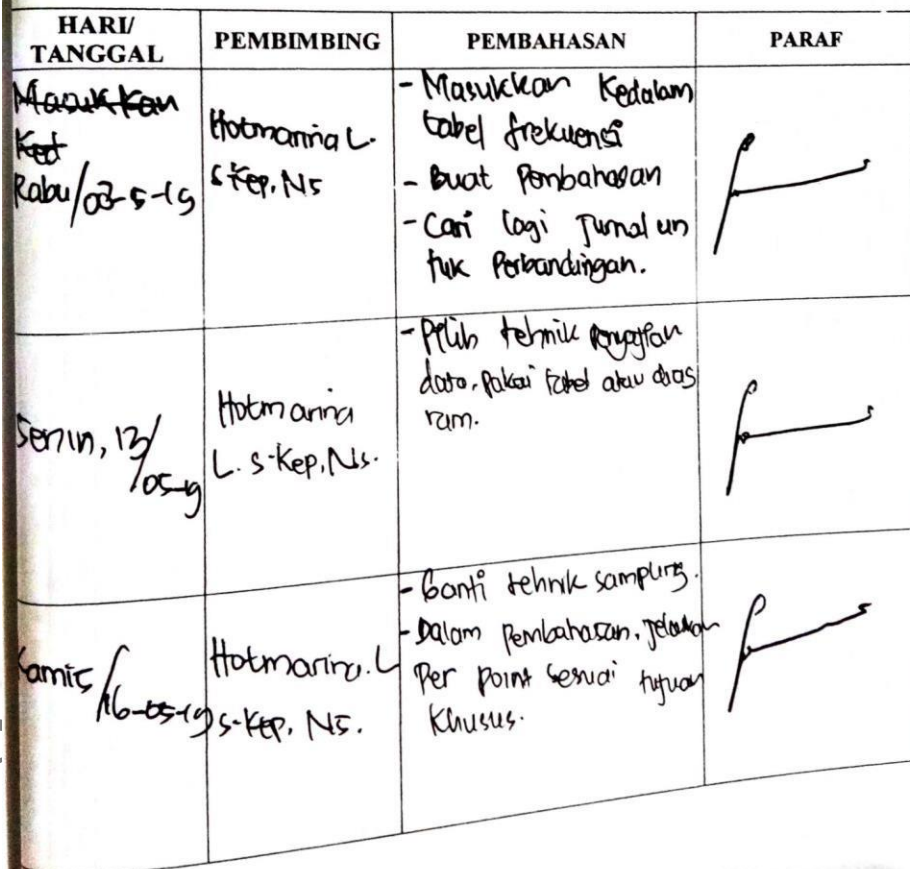 HARI/
TANGGAL
PEMBIMBING
PEMBAHASAN
PARAF
Masukkan
Ked
Rabu/03-5-19
Hotmarina L.
S.Kep, Ns
- Masukkan Kedalam
tabel frekuensi
- Buat Pembahasan
- Cari lagi Jurnal un
tuk Perbandingan.
Senin, 13/
05-19
Hotmarina
L. S.Kep, Ns.
- Pilih tehnik penyajian
data, Pakai tabel atau diag
ram.
Kamis/16-05-19
Hotmarina. L
S.Kep, Ns.
- Ganti tehnik sampling.
- Dalam Pembahasan, Jelaskan
Per point sesuai tujuan
Khusus.